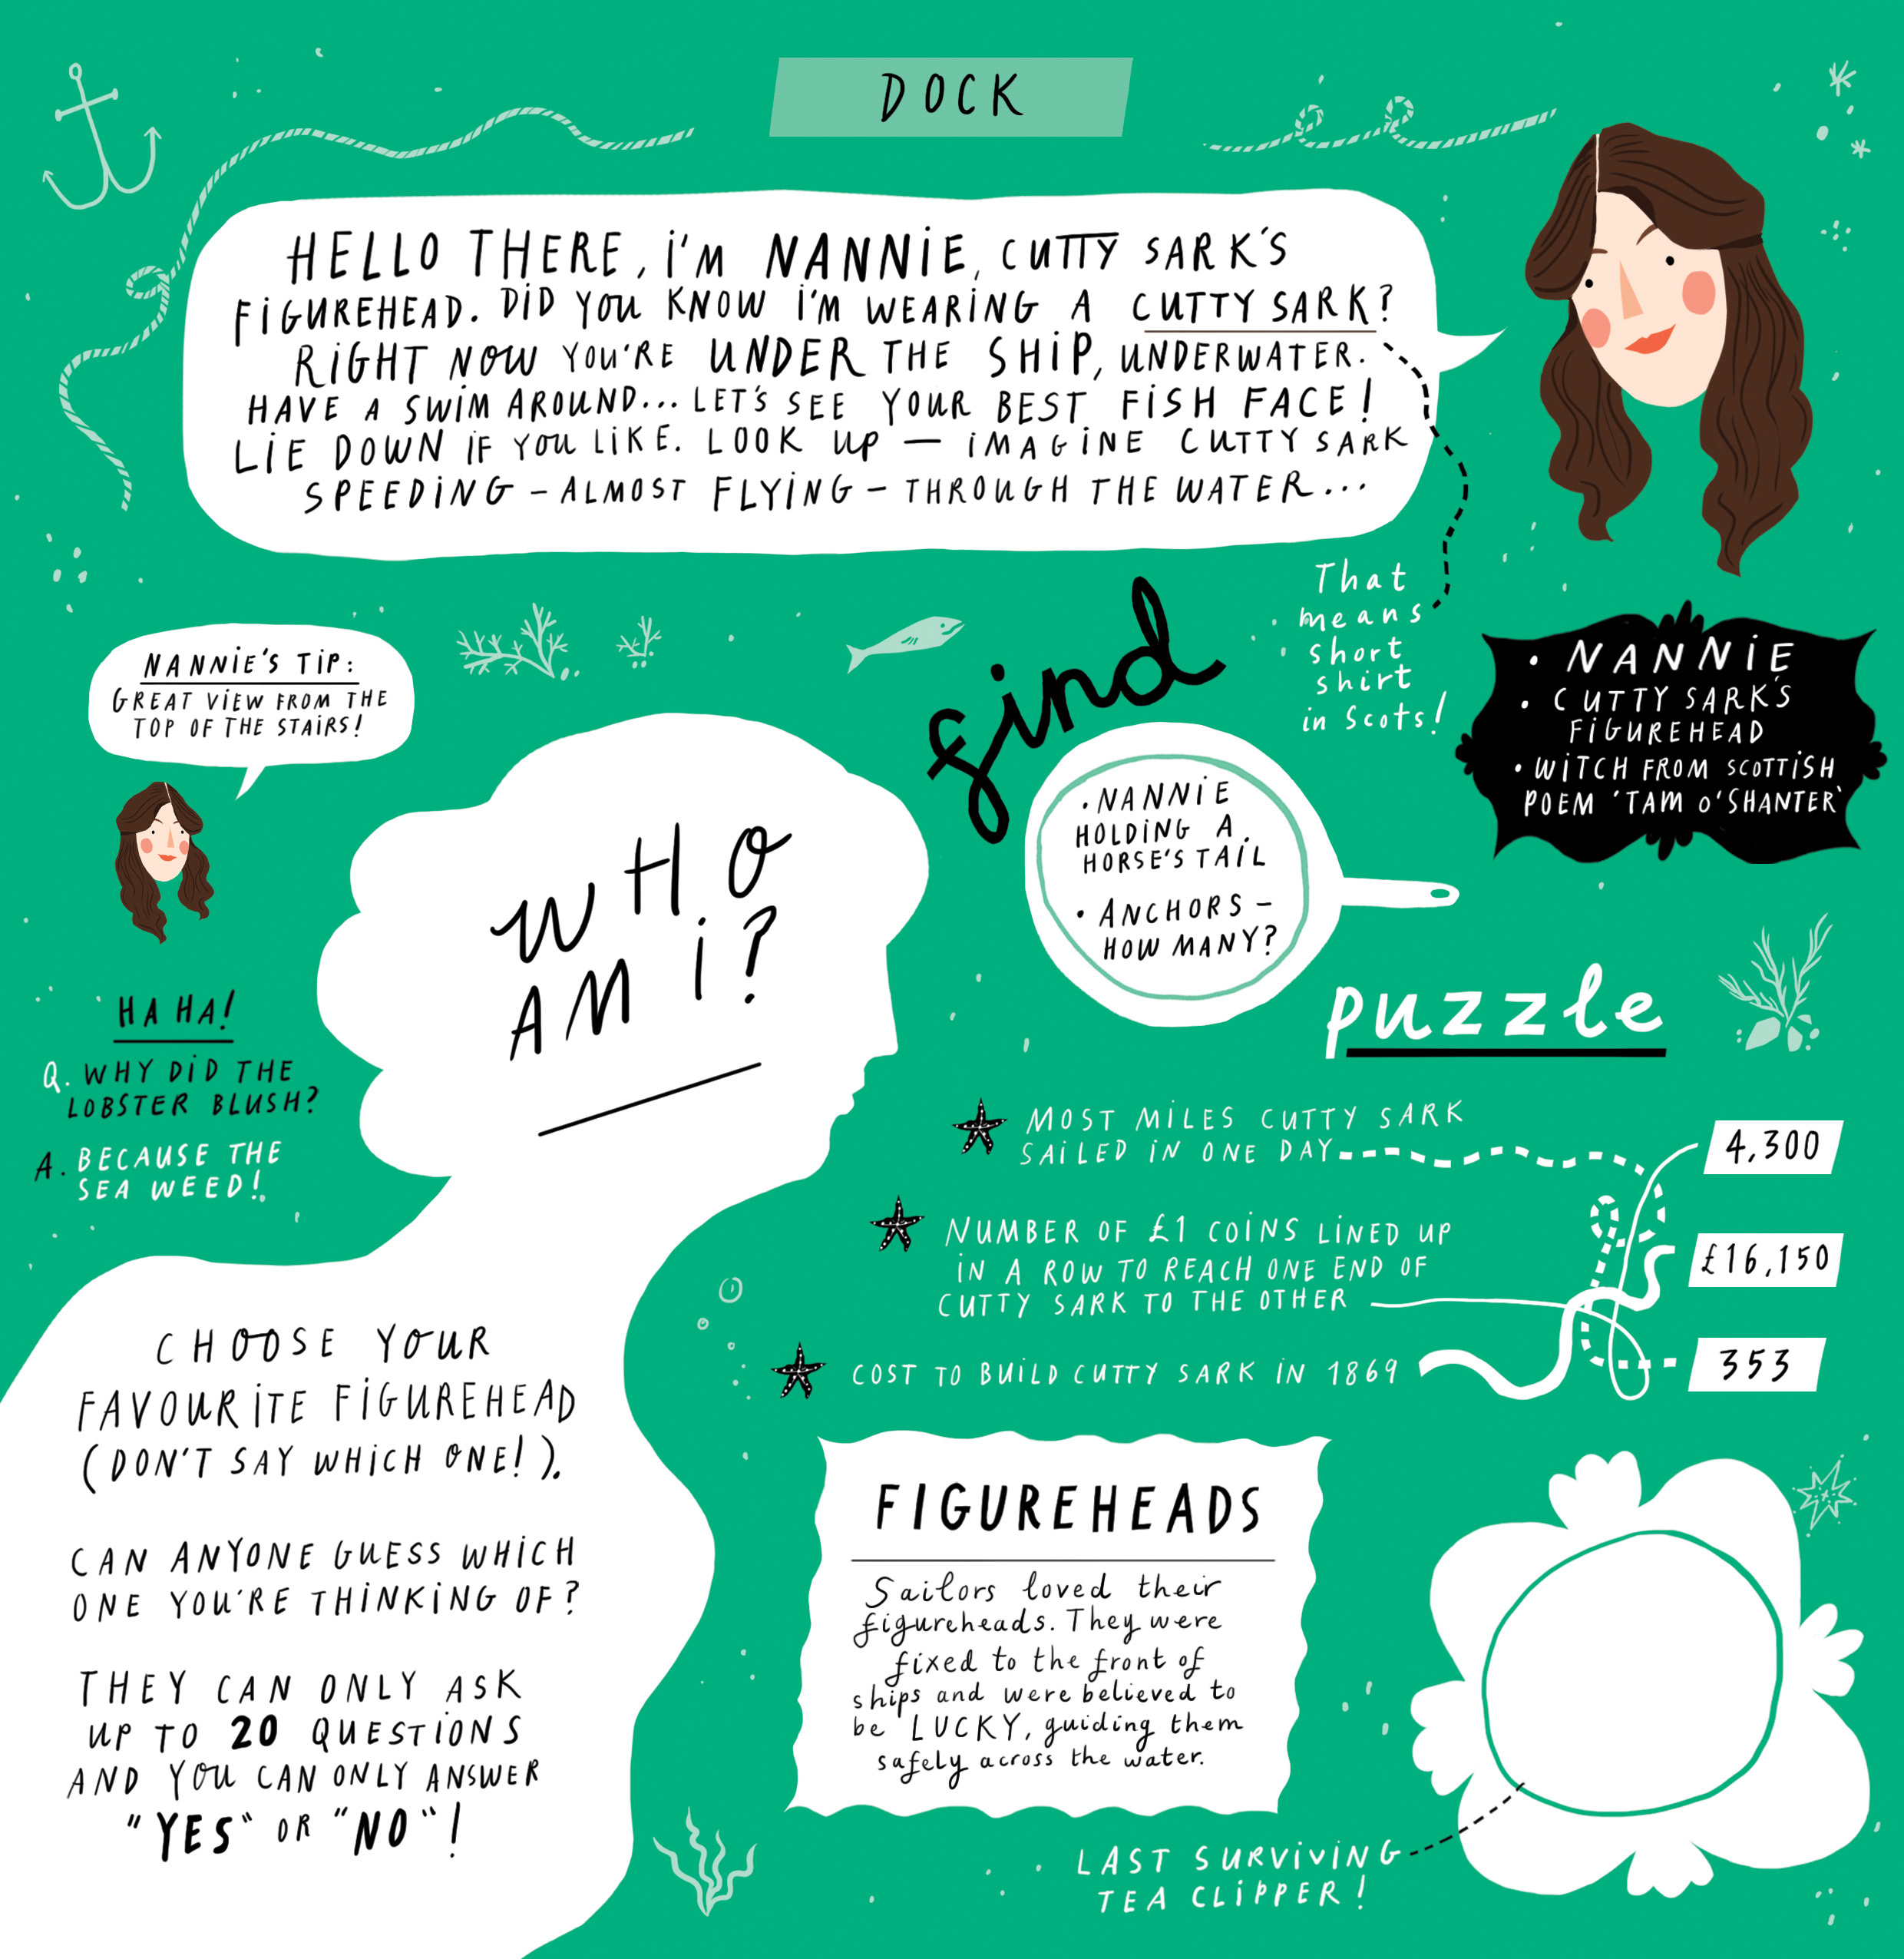 DOCK
HELLO THERE, i'M NANNiE, CUTTY SARK'S
FiGUREHEAD. DiD YOU KNOW i'M WEARiNG A CUTTY SARK?
RiGHT NOW YOU'RE UNDER THE SHiP, UNDERWATER.
HAVE A SWiM AROUND... LET'S SEE YOUR BEST FiSH FACE!
LiE DOWN iF YOU LiKE. LOOK UP – iMAGiNE CUTTY SARK
SPEEDiNG – ALMOST FLYiNG – THROUGH THE WATER...
That
means
short
shirt
in Scots!
• NANNiE
• CUTTY SARK'S
FiGUREHEAD
• WiTCH FROM SCOTTiSH
POEM 'TAM O'SHANTER'
NANNiE'S TiP:
GREAT ViEW FROM THE
TOP OF THE STAiRS!
find
• NANNiE
HOLDiNG A
HORSE'S TAiL
• ANCHORS –
HOW MANY?
WHO
AM i?
HA HA!
Q. WHY DiD THE
LOBSTER BLUSH?
A. BECAUSE THE
SEA WEED!
puzzle
MOST MiLES CUTTY SARK
SAiLED iN ONE DAY
4,300
NUMBER OF £1 COiNS LiNED UP
iN A ROW TO REACH ONE END OF
CUTTY SARK TO THE OTHER
£16,150
COST TO BUiLD CUTTY SARK iN 1869
353
CHOOSE YOUR
FAVOURiTE FiGUREHEAD
(DON'T SAY WHiCH ONE!).
CAN ANYONE GUESS WHiCH
ONE YOU'RE THiNKiNG OF?
THEY CAN ONLY ASK
UP TO 20 QUESTiONS
AND YOU CAN ONLY ANSWER
"YES" OR "NO"!
FIGUREHEADS
Sailors loved their
figureheads. They were
fixed to the front of
ships and were believed to
be LUCKY, guiding them
safely across the water.
LAST SURViViNG
TEA CLiPPER!